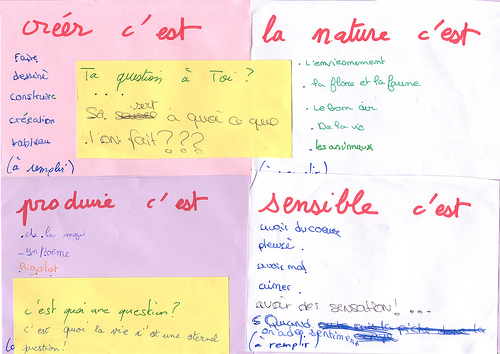 créér c'est
Faire
dessiné
construire
création
tableau
(à remplir)
Ta question à Toi ?
...
Sa sert à quoi ce que
l'on fait ???
la nature c'est
. L'environnement
. la flore et la faune
. Le bon air
. De la vie
. les animaux
produire c'est
. de la magi
- un Poème
Rigolot
c'est quoi une question ?
c'est quoi la vie c'est une eternel
question !
sensible c'est
avoir du coeur
pleuré .
avoir mal
aimer .
avoir des sensation ! ...
Quand
on a des sentiment
(à remplir)